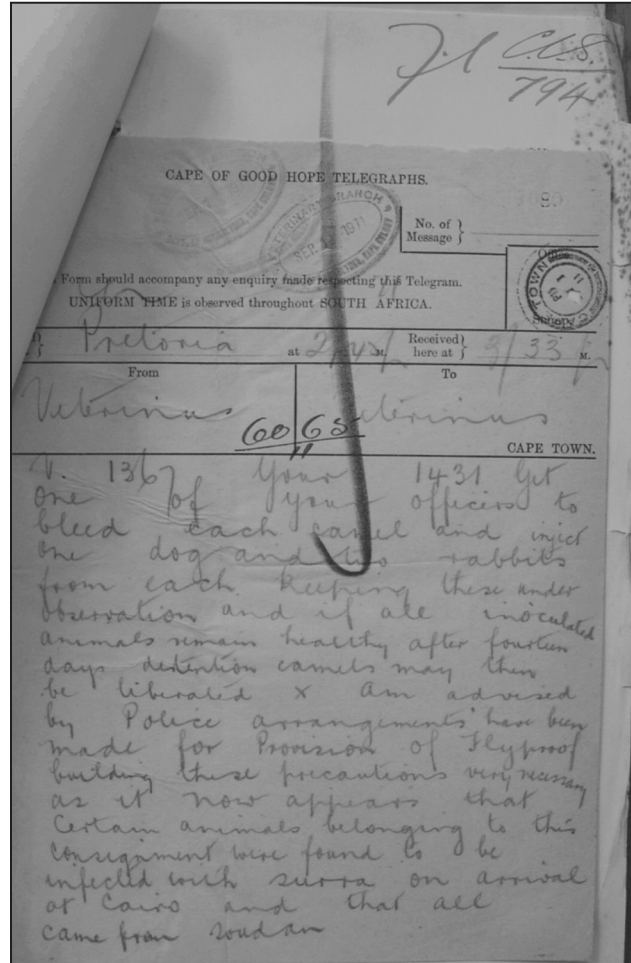 C.V.S.
794
CAPE OF GOOD HOPE TELEGRAPHS.
VETERINARY BRANCH
SEP 1911
No. of
Message
Form should accompany any enquiry made respecting this Telegram.
UNIFORM TIME is observed throughout SOUTH AFRICA.
Pretoria at M. Received
here at 3/33 M.
From To
Veterinus Veterinus
60 65
CAPE TOWN.
V. 1367 Your 1431 Get
one of your officers to
bleed each camel and inject
one dog and two rabbits
from each keeping these under
observation and if all inoculated
animals remain healthy after fourteen
days detention camels may then
be liberated x Am advised
by Police arrangements have been
made for Provision of Flyproof
building these precautions very necessary
as it now appears that
Certain animals belonging to this
consignment were found to be
infected with surra on arrival
at Cairo and that all
came from soudan